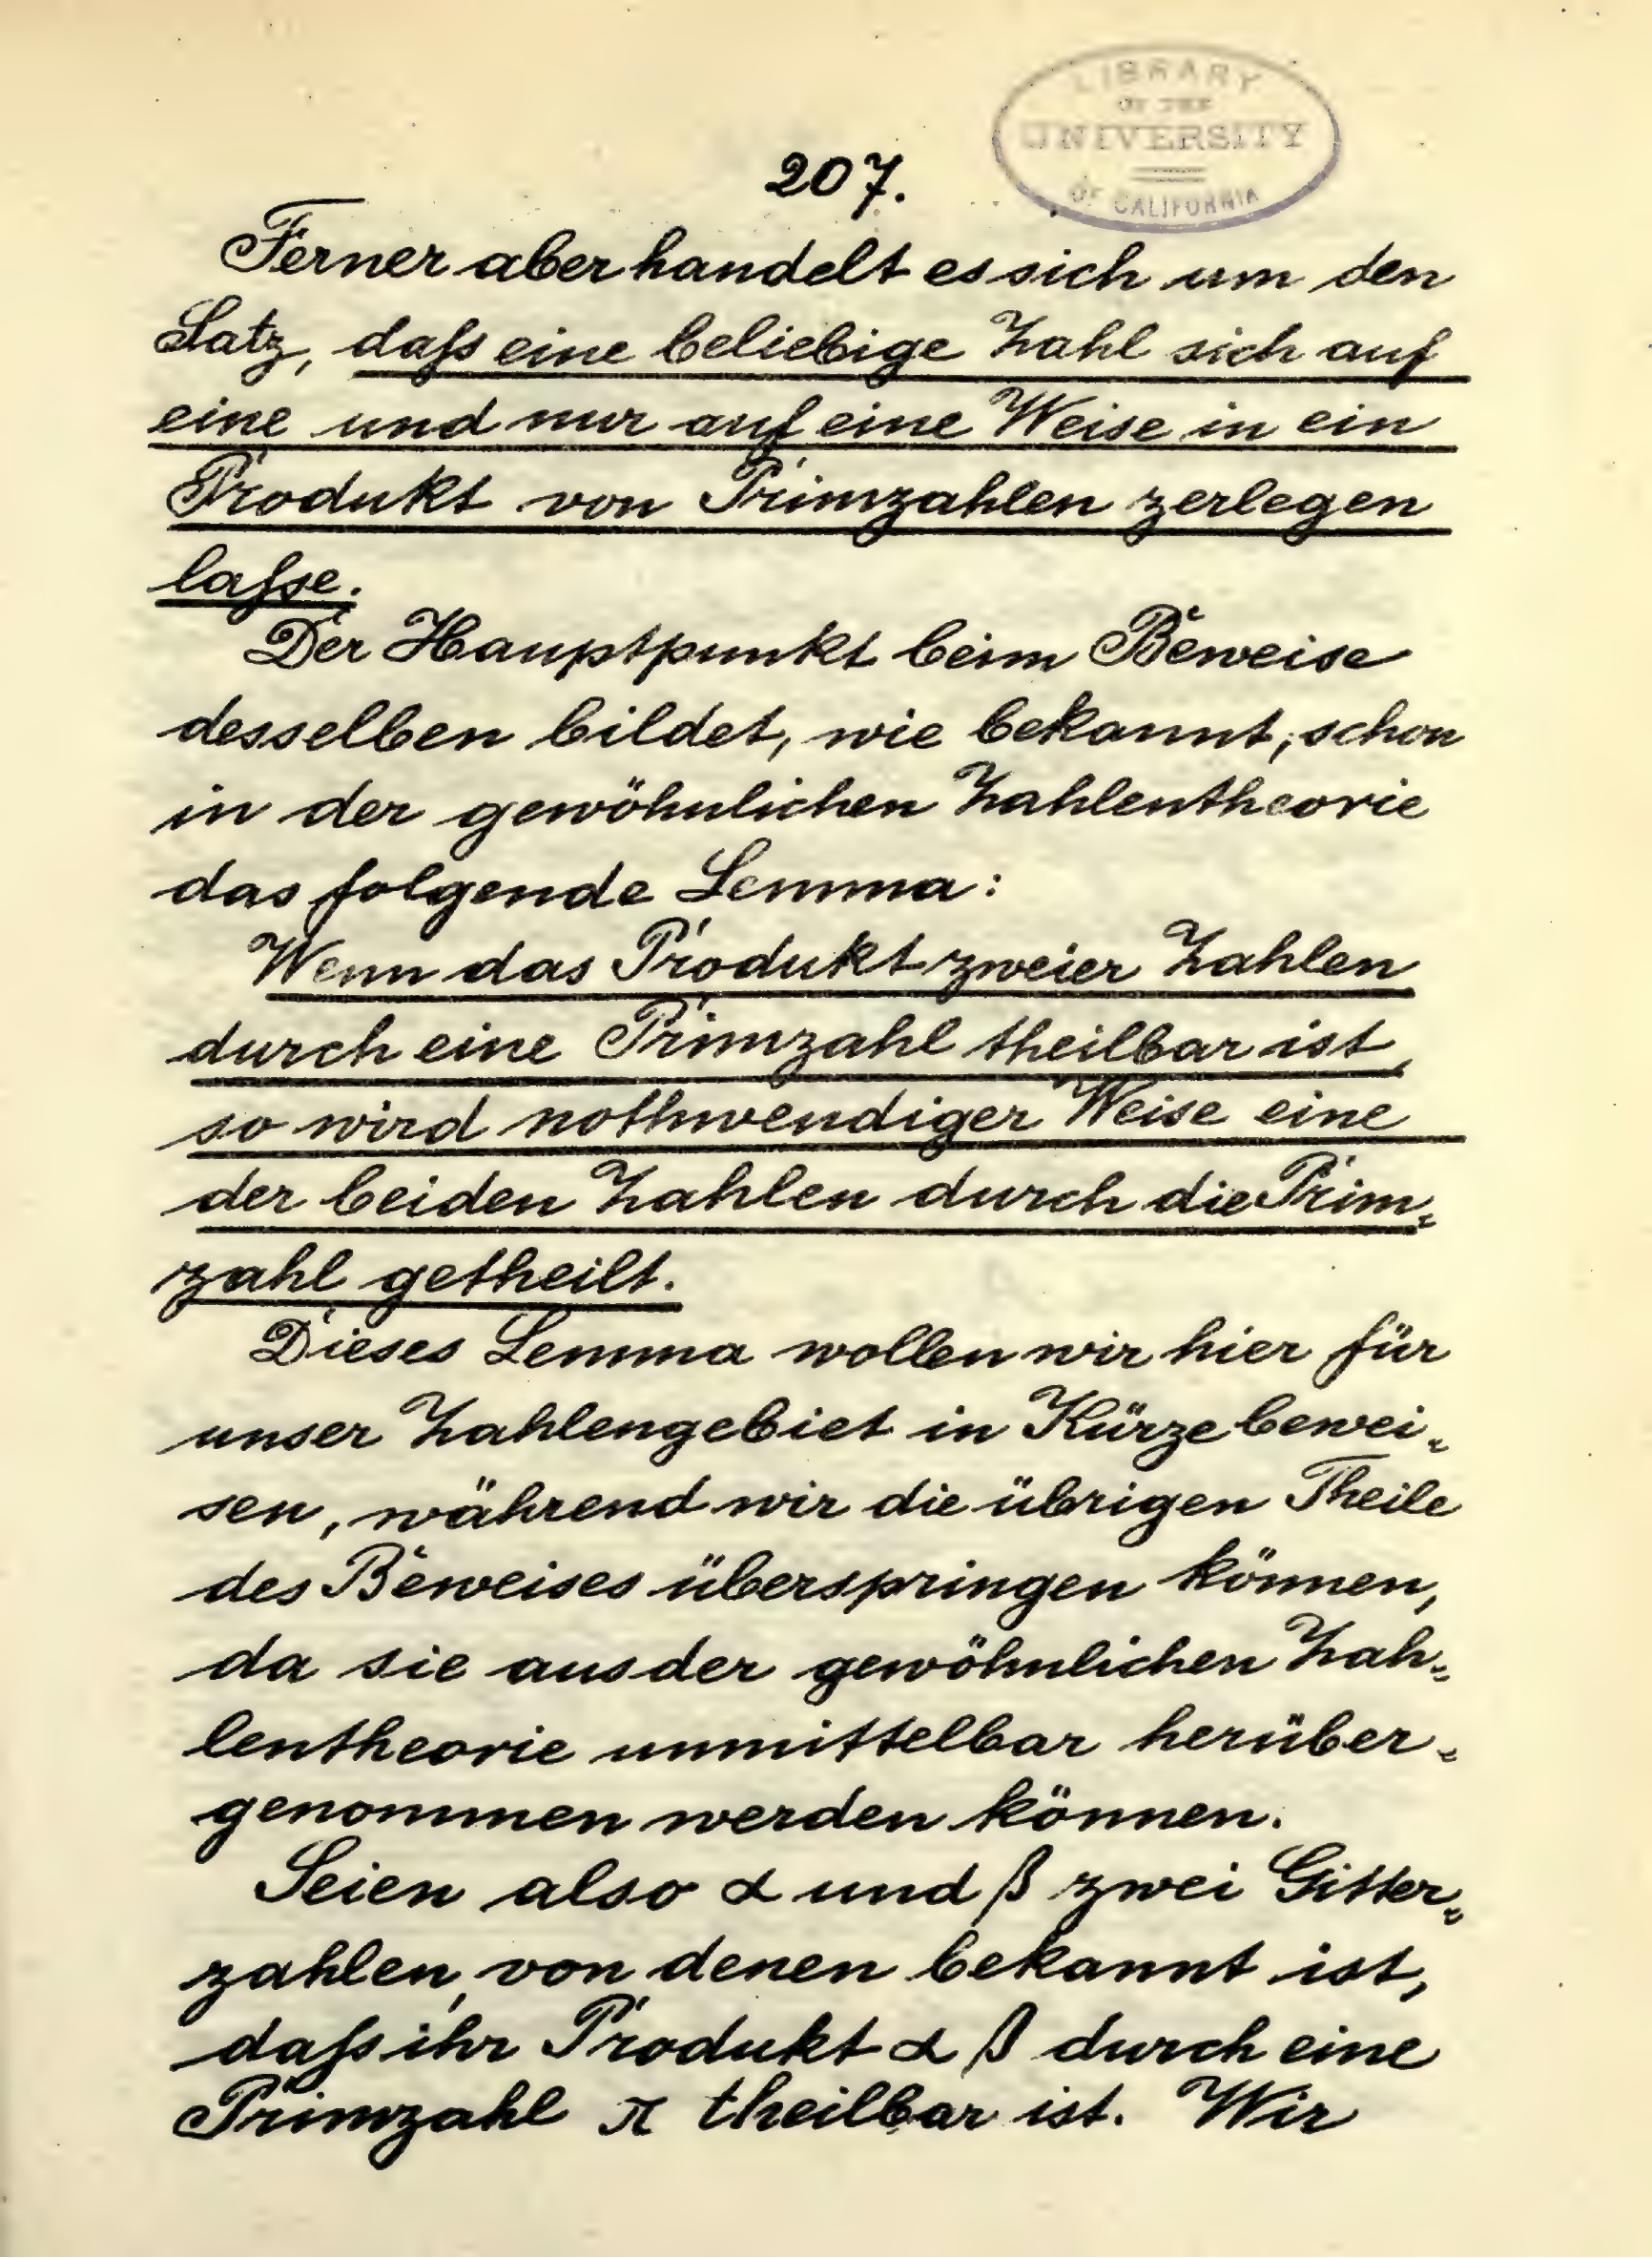 LIBRARY
OF THE
UNIVERSITY
OF CALIFORNIA
207.
Ferner aber handelt es sich um den
Satz, daſs eine beliebige Zahl sich auf
eine und nur auf eine Weise in ein
Produkt von Primzahlen zerlegen
laſse.
Der Hauptpunkt beim Beweise
desselben bildet, wie bekannt, schon
in der gewöhnlichen Zahlentheorie
das folgende Lemma:
Wenn das Produkt zweier Zahlen
durch eine Primzahl theilbar ist,
so wird nothwendiger Weise eine
der beiden Zahlen durch die Prim-
zahl getheilt.
Dieses Lemma wollen wir hier für
unser Zahlengebiet in Kürze bewei-
sen, während wir die übrigen Theile
des Beweises überspringen können,
da sie aus der gewöhnlichen Zah-
lentheorie unmittelbar herüber-
genommen werden können.
Seien also α und β zwei Gitter-
zahlen, von denen bekannt ist,
daſs ihr Produkt α β durch eine
Primzahl π theilbar ist. Wir